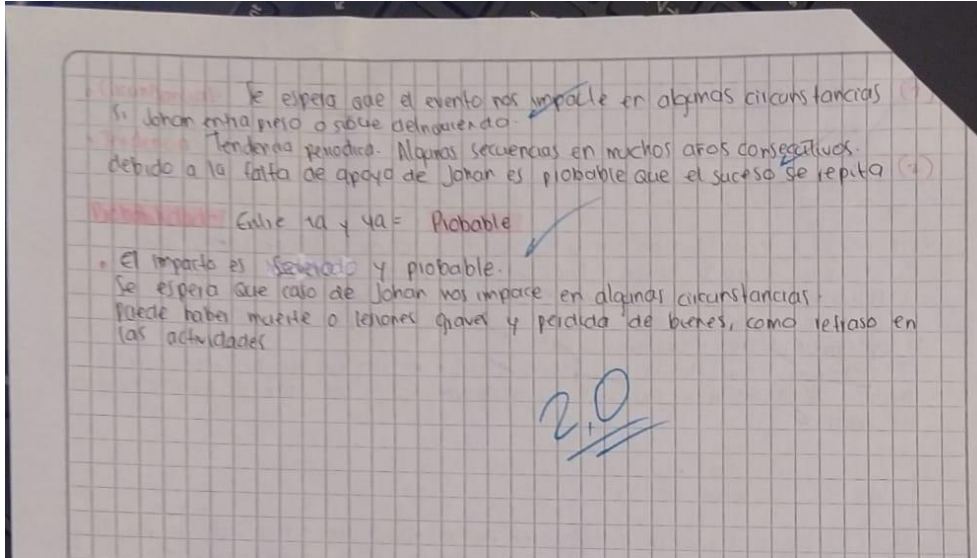 Se espera que el evento nos impacte en algunas circunstancias
Si Johan entra preso o sigue delinquiendo.
Tendencia periodica. Algunas secuencias en muchos años consecutivos.
debido a la falta de apoyo de Johan es probable que el suceso se repita
Entre 1a y 4a = Probable
• El impacto es y probable.
Se espera que caso de Johan nos impace en algunas circunstancias
puede haber muerte o graves y perdida de bienes, como retraso en
las actividades
2.0